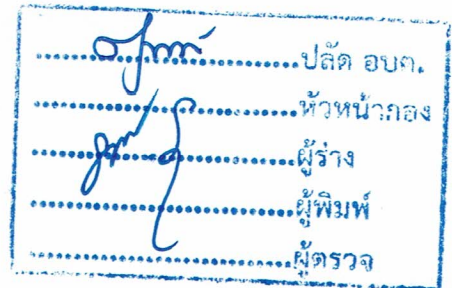 ปลัด อบต.
หัวหน้ากอง
ผู้ร่าง
ผู้พิมพ์
ผู้ตรวจ